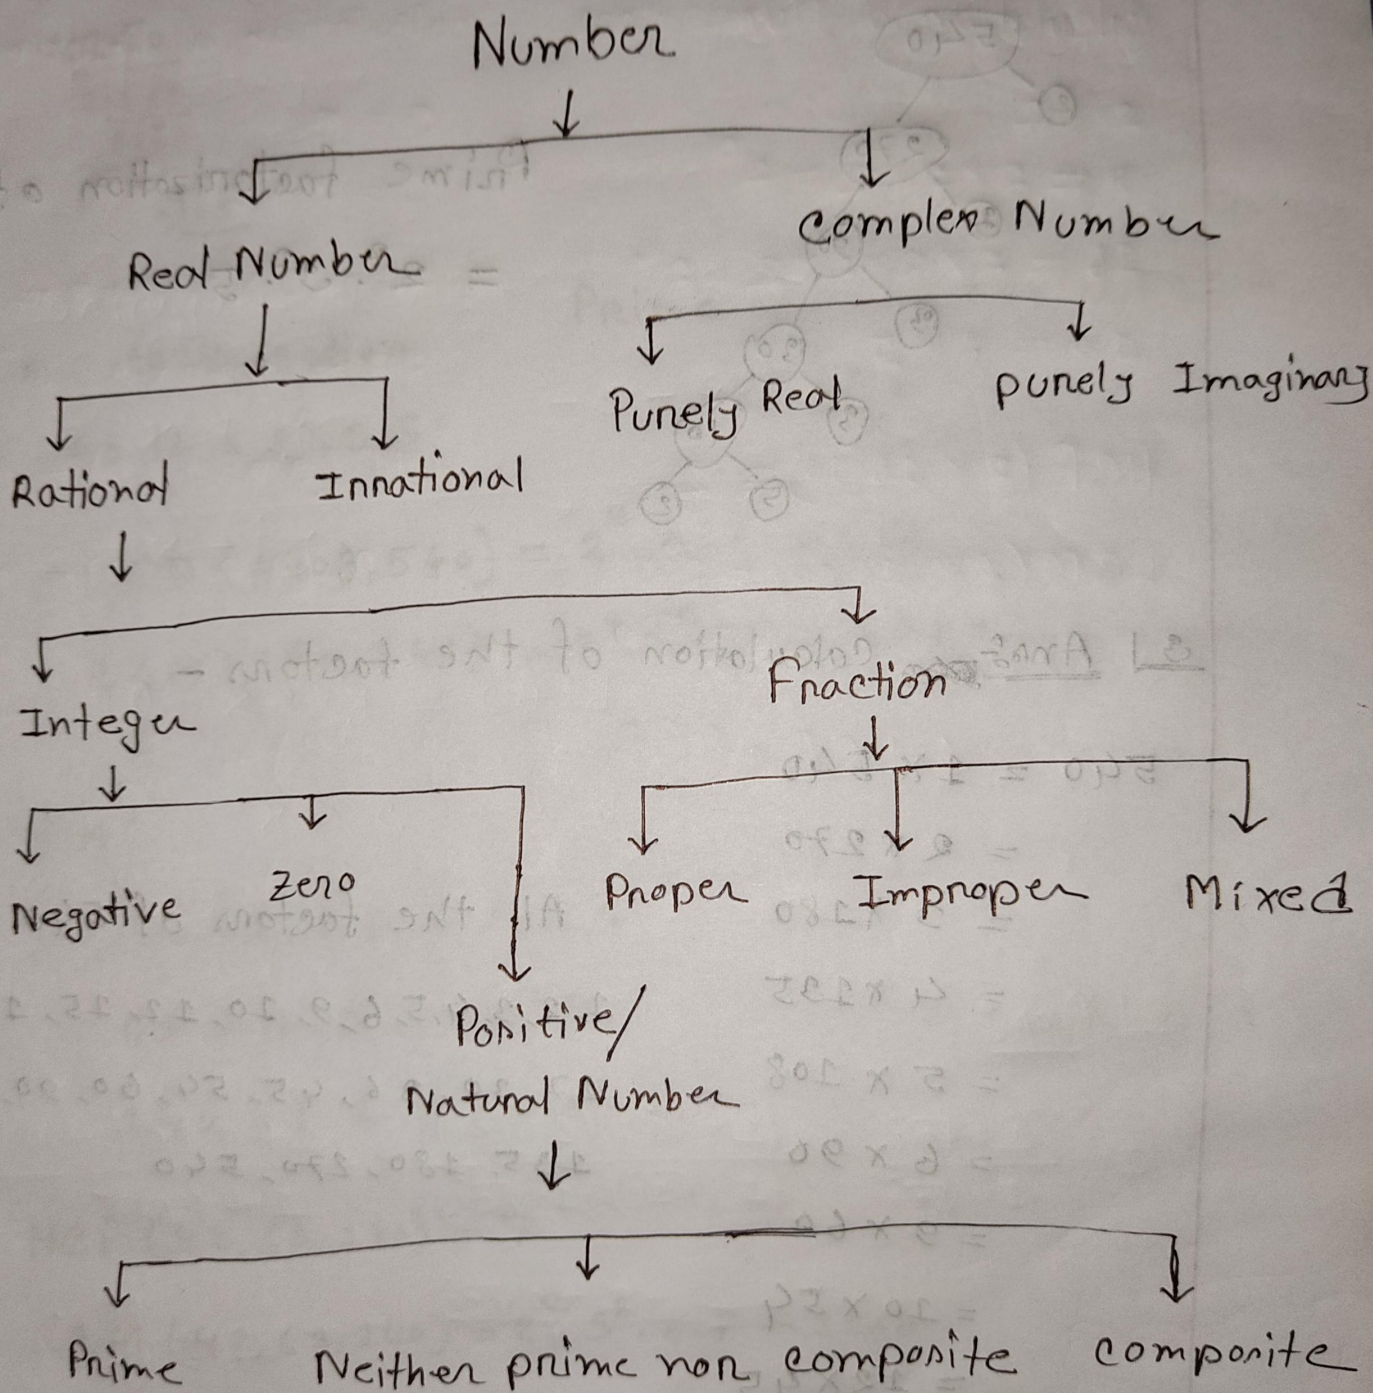 Number
Real Number
Complex Number
Purely Real
Purely Imaginary
Rational
Irrational
Integer
Fraction
Negative
Zero
Proper
Improper
Mixed
Positive/
Natural Number
Prime
Neither prime nor composite
composite